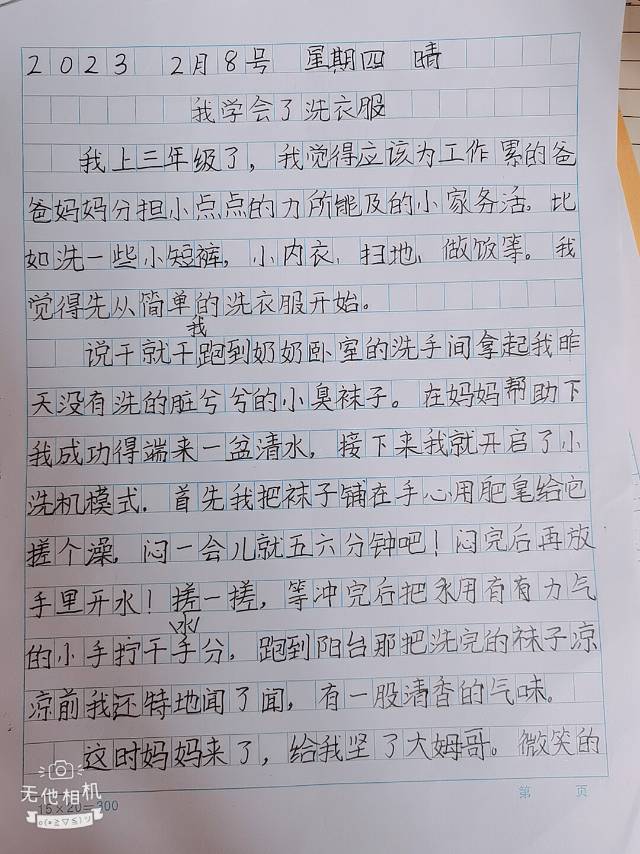 2023 2月8号 星期四 晴
我学会了洗衣服
我上三年级了，我觉得应该为工作累的爸
爸妈妈分担小点点的力所能及的小家务活。比
如洗一些小短裤，小内衣、扫地、做饭等。我
觉得先从简单的洗衣服开始。
我
说干就干跑到奶奶卧室的洗手间拿起我昨
天没有洗的脏兮兮的小臭袜子。在妈妈帮助下
我成功得端来一盆清水，接下来我就开启了小
洗机模式．首先我把袜子铺在手心用肥皂给它
搓个澡，闷一会儿就五六分钟吧！闷完后再放
手里开水！搓一搓，等冲完后把永用有有力气
水
的小手拧干手分，跑到阳台那把洗完的袜子凉
凉前我还特地闻了闻，有一股清香的气味。
这时妈妈来了，给我竖了大姆哥。微笑的
15×20=300
第 页
无他相机